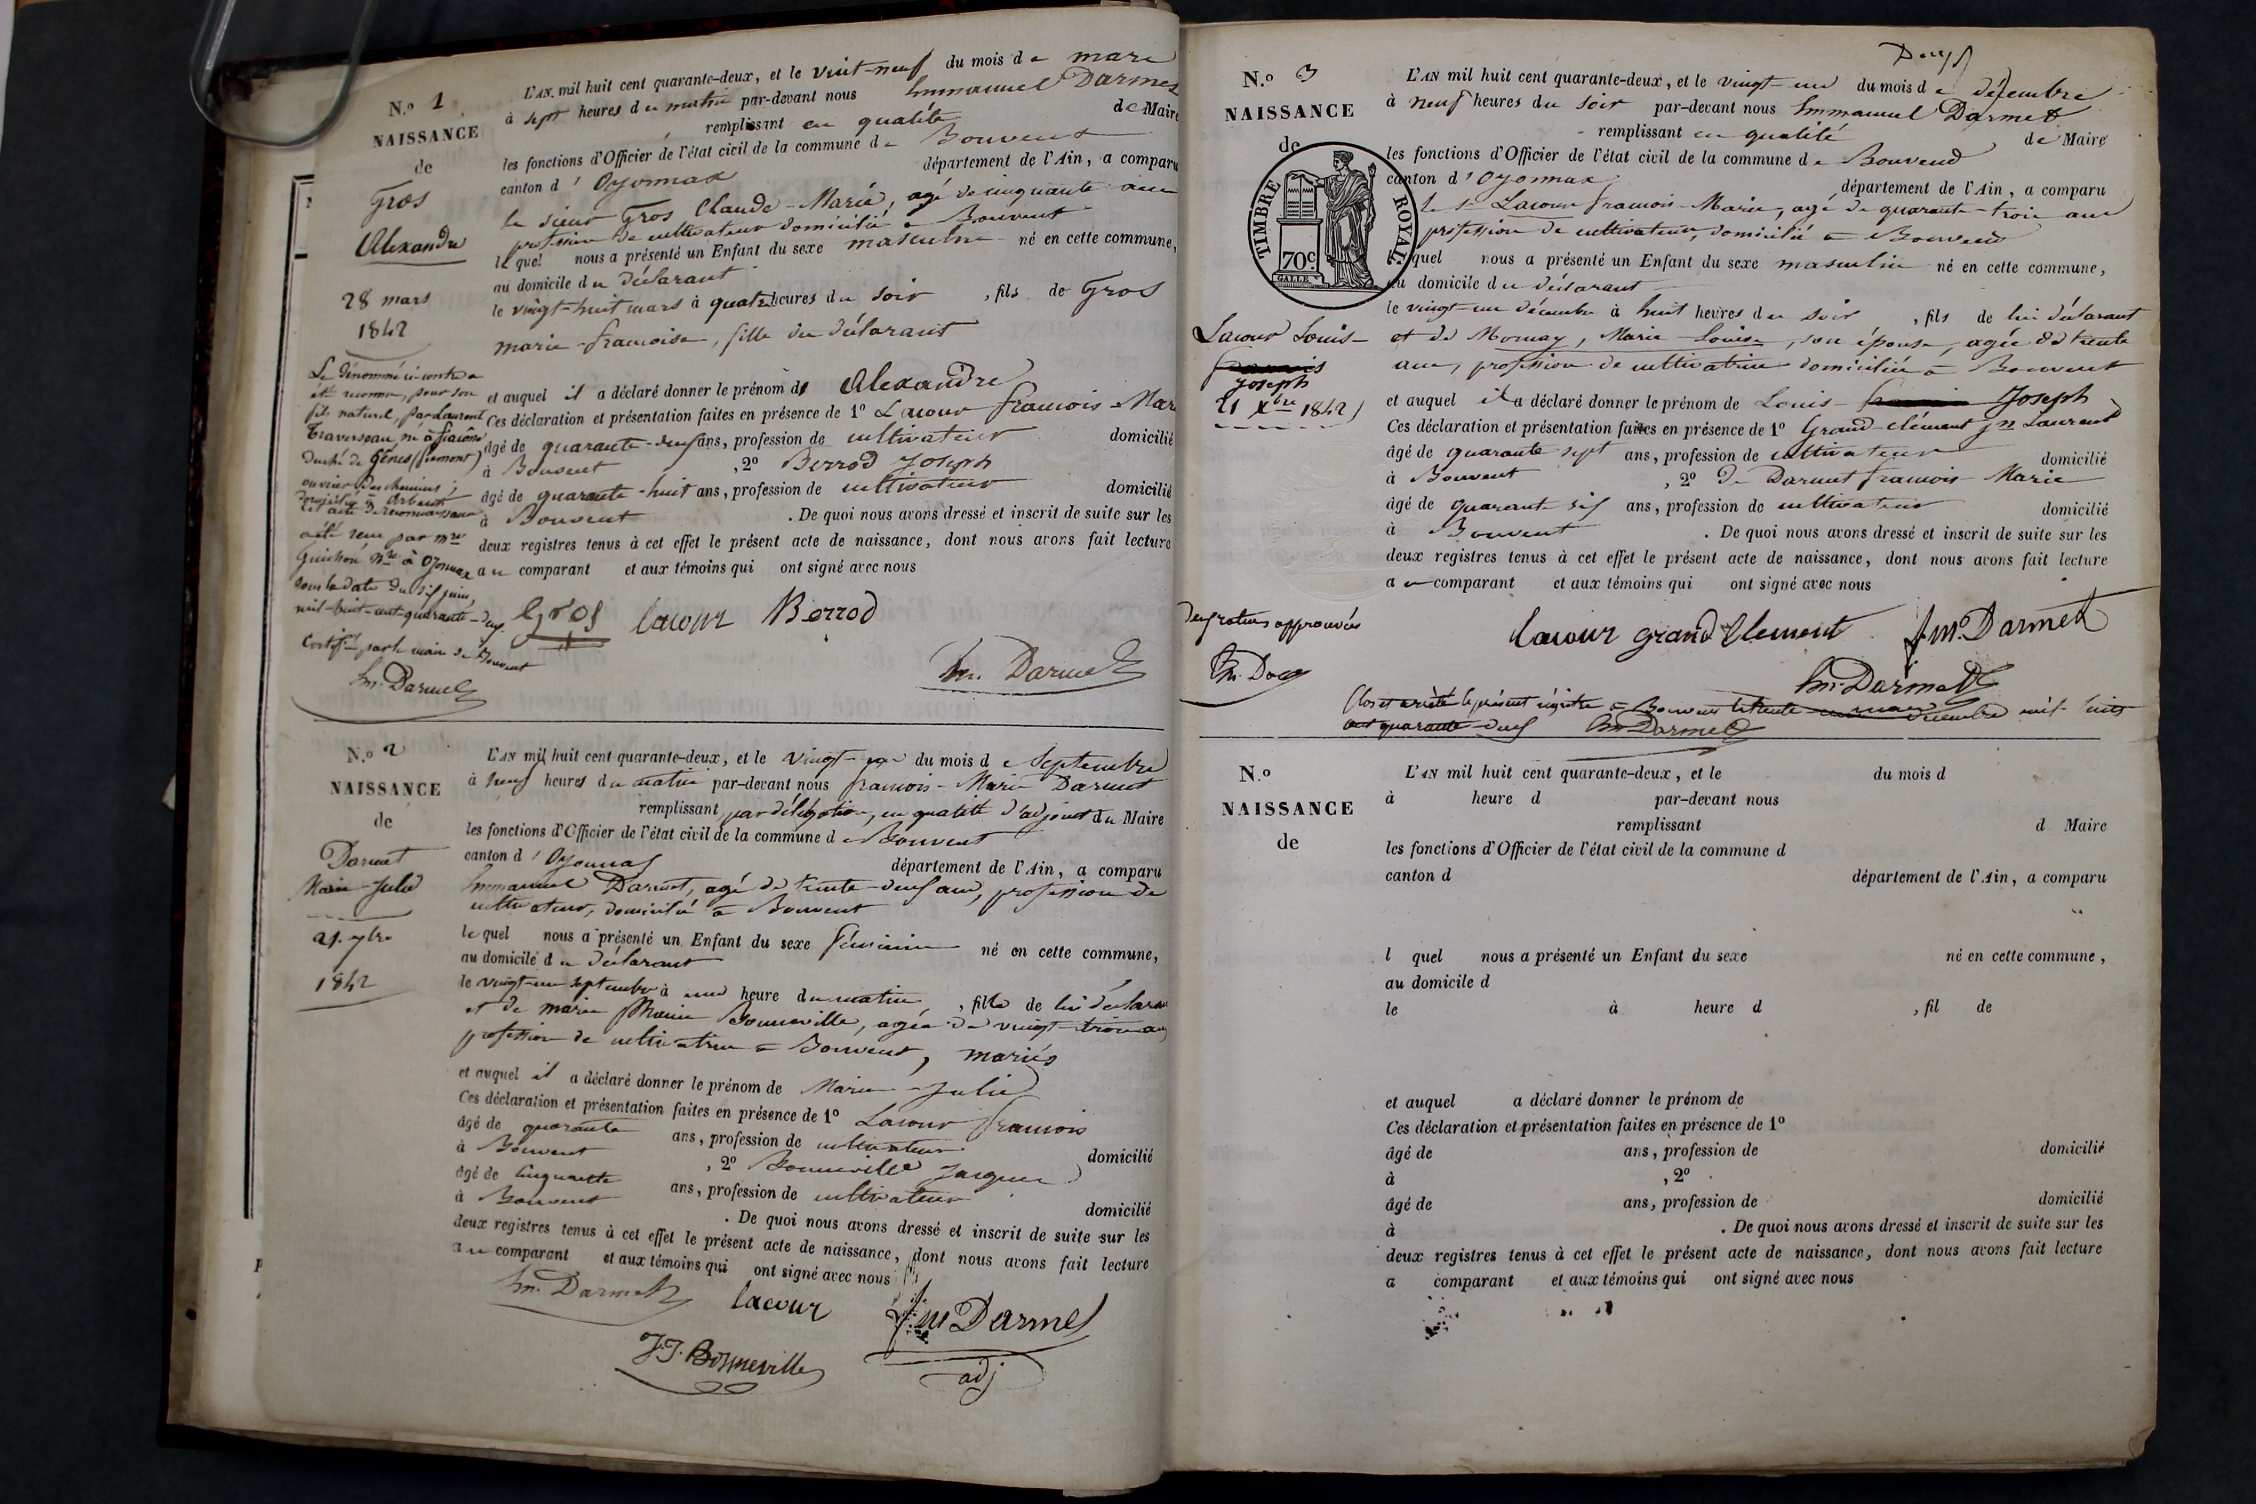 N.º 1
NAISSANCE
de
Gros
Alexandre
28 mars
1842
Le dénommé ci-contre a
été reconnu, pour son
fils naturel, par Laurent
Traverseau, né à
duché de Gênes (piémont)
ouvrier des chemins,
domicilié à Arbent
cet acte de reconnaissance
a été reçu par Mre
Guichon Nre à Oyonnax
sous la date du six juin,
mil-huit-cent-quarante-deux.
Certifié par le maire de Bouvent
Em. Darmet
L'AN mil huit cent quarante-deux, et le vint-neuf du mois de mars
à sept heures du matin par-devant nous Emmanuel Darmet
remplissant en qualité de Maire
les fonctions d'Officier de l'état civil de la commune de Bouvent
canton d'Oyonnax département de l'Ain, a comparu
le sieur Gros Claude-Marie, agé de cinquante ans
profession de cultivateur domicilié à Bouvent
lequel nous a présenté un Enfant du sexe masculin né en cette commune,
au domicile du déclarant
le vingt-huit mars à quatre heures du soir, fils de Gros
marie-francoise, fille du déclarant
et auquel il a déclaré donner le prénom de Alexandre
Ces déclaration et présentation faites en présence de 1º Lacour francois-Mar
âgé de quarante-deux ans, profession de cultivateur domicilié
à Bouvent, 2º Berrod Joseph
âgé de quarante-huit ans, profession de cultivateur domicilié
à Bouvent. De quoi nous avons dressé et inscrit de suite sur les
deux registres tenus à cet effet le présent acte de naissance, dont nous avons fait lecture
au comparant et aux témoins qui ont signé avec nous
Gros lacour Berrod
Em. Darmet
N.º 2
NAISSANCE
de
Darmet
Marie-Julie
21. 7bre
1842
L'AN mil huit cent quarante-deux, et le vingt-un du mois de Septembre
à neuf heures du matin par-devant nous francois-Marie Darmet
remplissant par délégation, en qualité d'adjoint du Maire
les fonctions d'Officier de l'état civil de la commune de Bouvent
canton d'Oyonnax département de l'Ain, a comparu
Emmanuel Darmet, agé de trente-deux ans, profession de
cultivateur, domicilié à Bouvent
lequel nous a présenté un Enfant du sexe féminin né en cette commune,
au domicile du déclarant
le vingt-un septembre à une heure du matin, fille de lui déclarant
et de marie Bonneville, agée de vingt-trois ans
profession de cultivatrice à Bouvent, mariés
et auquel il a déclaré donner le prénom de Marie-Julie
Ces déclaration et présentation faites en présence de 1º Lacour francois
âgé de quarante ans, profession de cultivateur domicilié
à Bouvent, 2º Bonneville Jacques
âgé de cinquante ans, profession de cultivateur domicilié
à Bouvent. De quoi nous avons dressé et inscrit de suite sur les
deux registres tenus à cet effet le présent acte de naissance, dont nous avons fait lecture
au comparant et aux témoins qui ont signé avec nous
Em. Darmet lacour f. m Darmet
J.J. Bonneville adj
Deux
N.º 3
NAISSANCE
de
TIMBRE ROYAL
70c
GALLE
Lacour Louis-
francois
Joseph
21 Xbre 1842
deux ratures approuvées
L'AN mil huit cent quarante-deux, et le vingt-un du mois de décembre
à neuf heures du soir par-devant nous Emmanuel Darmet
remplissant en qualité de Maire
les fonctions d'Officier de l'état civil de la commune de Bouvent
canton d'Oyonnax département de l'Ain, a comparu
le sr Lacour francois-Marie, agé de quarante-trois ans
profession de cultivateur, domicilié à Bouvent
lequel nous a présenté un Enfant du sexe masculin né en cette commune,
au domicile du déclarant
le vingt-un décembre à huit heures du soir, fils de lui déclarant
et de Mornay, Marie-Louise, son épouse, agée de trente
ans, profession de cultivatrice domiciliée à Bouvent
et auquel il a déclaré donner le prénom de Louis-francois Joseph
Ces déclaration et présentation faites en présence de 1º Grand-clément jn Laurent
âgé de quarante sept ans, profession de cultivateur domicilié
à Bouvent, 2º De Darmet francois-Marie
âgé de quarante-six ans, profession de cultivateur domicilié
à Bouvent. De quoi nous avons dressé et inscrit de suite sur les
deux registres tenus à cet effet le présent acte de naissance, dont nous avons fait lecture
au comparant et aux témoins qui ont signé avec nous
lacour grand Clement f. m. Darmet
Em. Darmet
Clos et arrêté le présent régistre à Bouvent le trente-un décembre mil-huit
cent quarante-deux Em Darmet
N.º
NAISSANCE
de
L'AN mil huit cent quarante-deux, et le du mois d
à heure d par-devant nous
remplissant d Maire
les fonctions d'Officier de l'état civil de la commune d
canton d département de l'Ain, a comparu
l quel nous a présenté un Enfant du sexe né en cette commune,
au domicile d
le à heure d , fil de
et auquel a déclaré donner le prénom de
Ces déclaration et présentation faites en présence de 1º
âgé de ans, profession de domicilié
à , 2º
âgé de ans, profession de domicilié
à . De quoi nous avons dressé et inscrit de suite sur les
deux registres tenus à cet effet le présent acte de naissance, dont nous avons fait lecture
a comparant et aux témoins qui ont signé avec nous